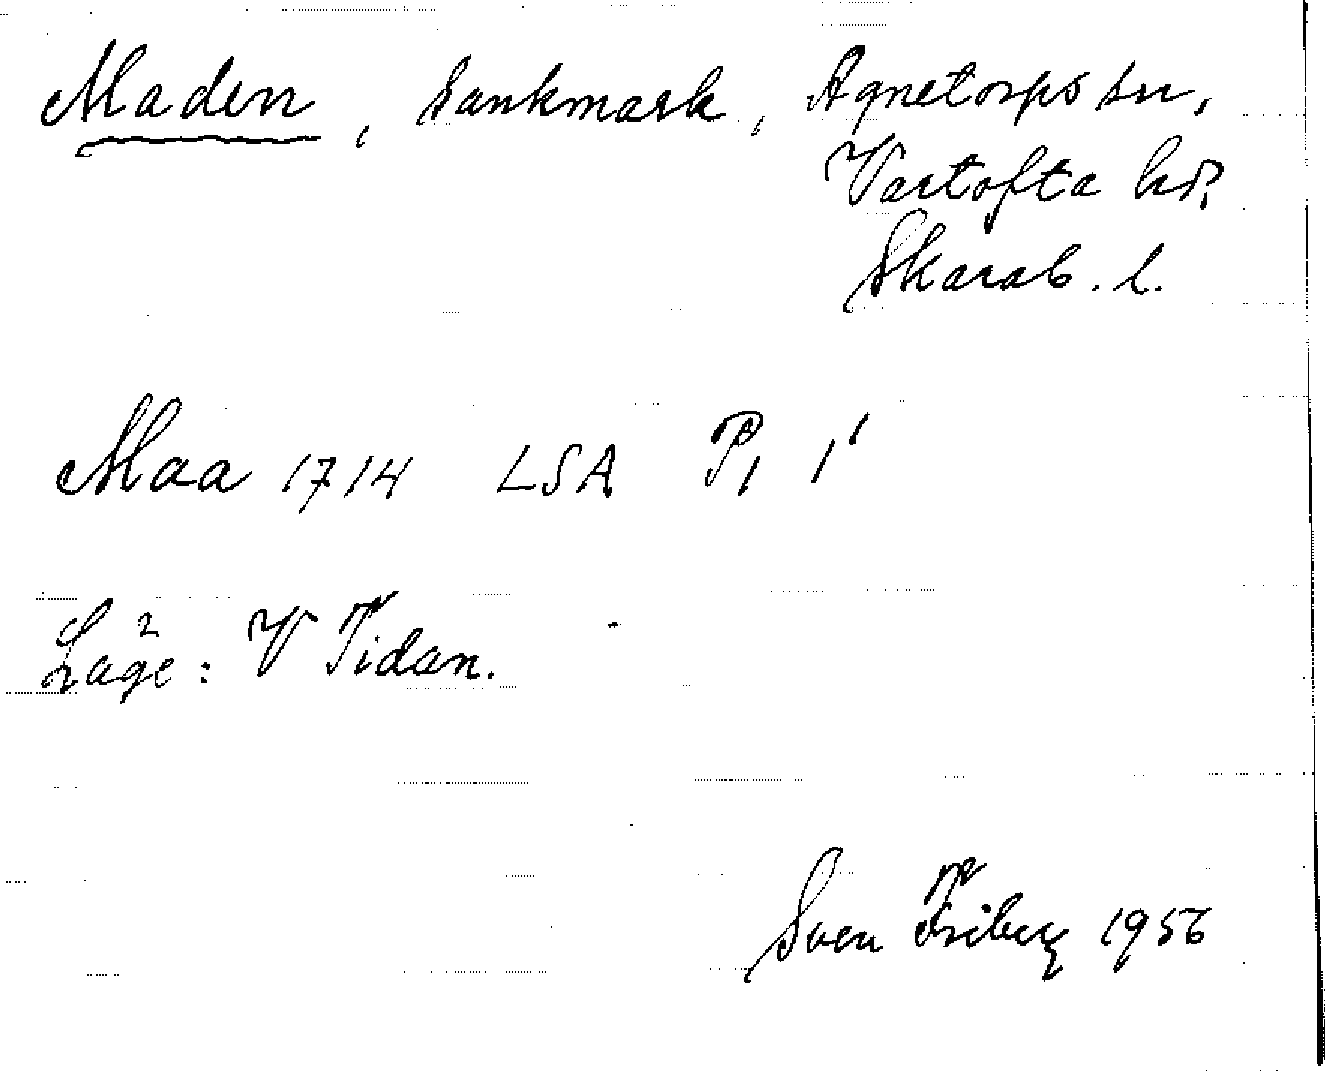 Maden, Sankmark, Agnetorps sn,
Vartofta hd,
Skarab. l.
Maa 1714 LSA P, 1'
Läge: V Tidan.
Sven Friberg 1956